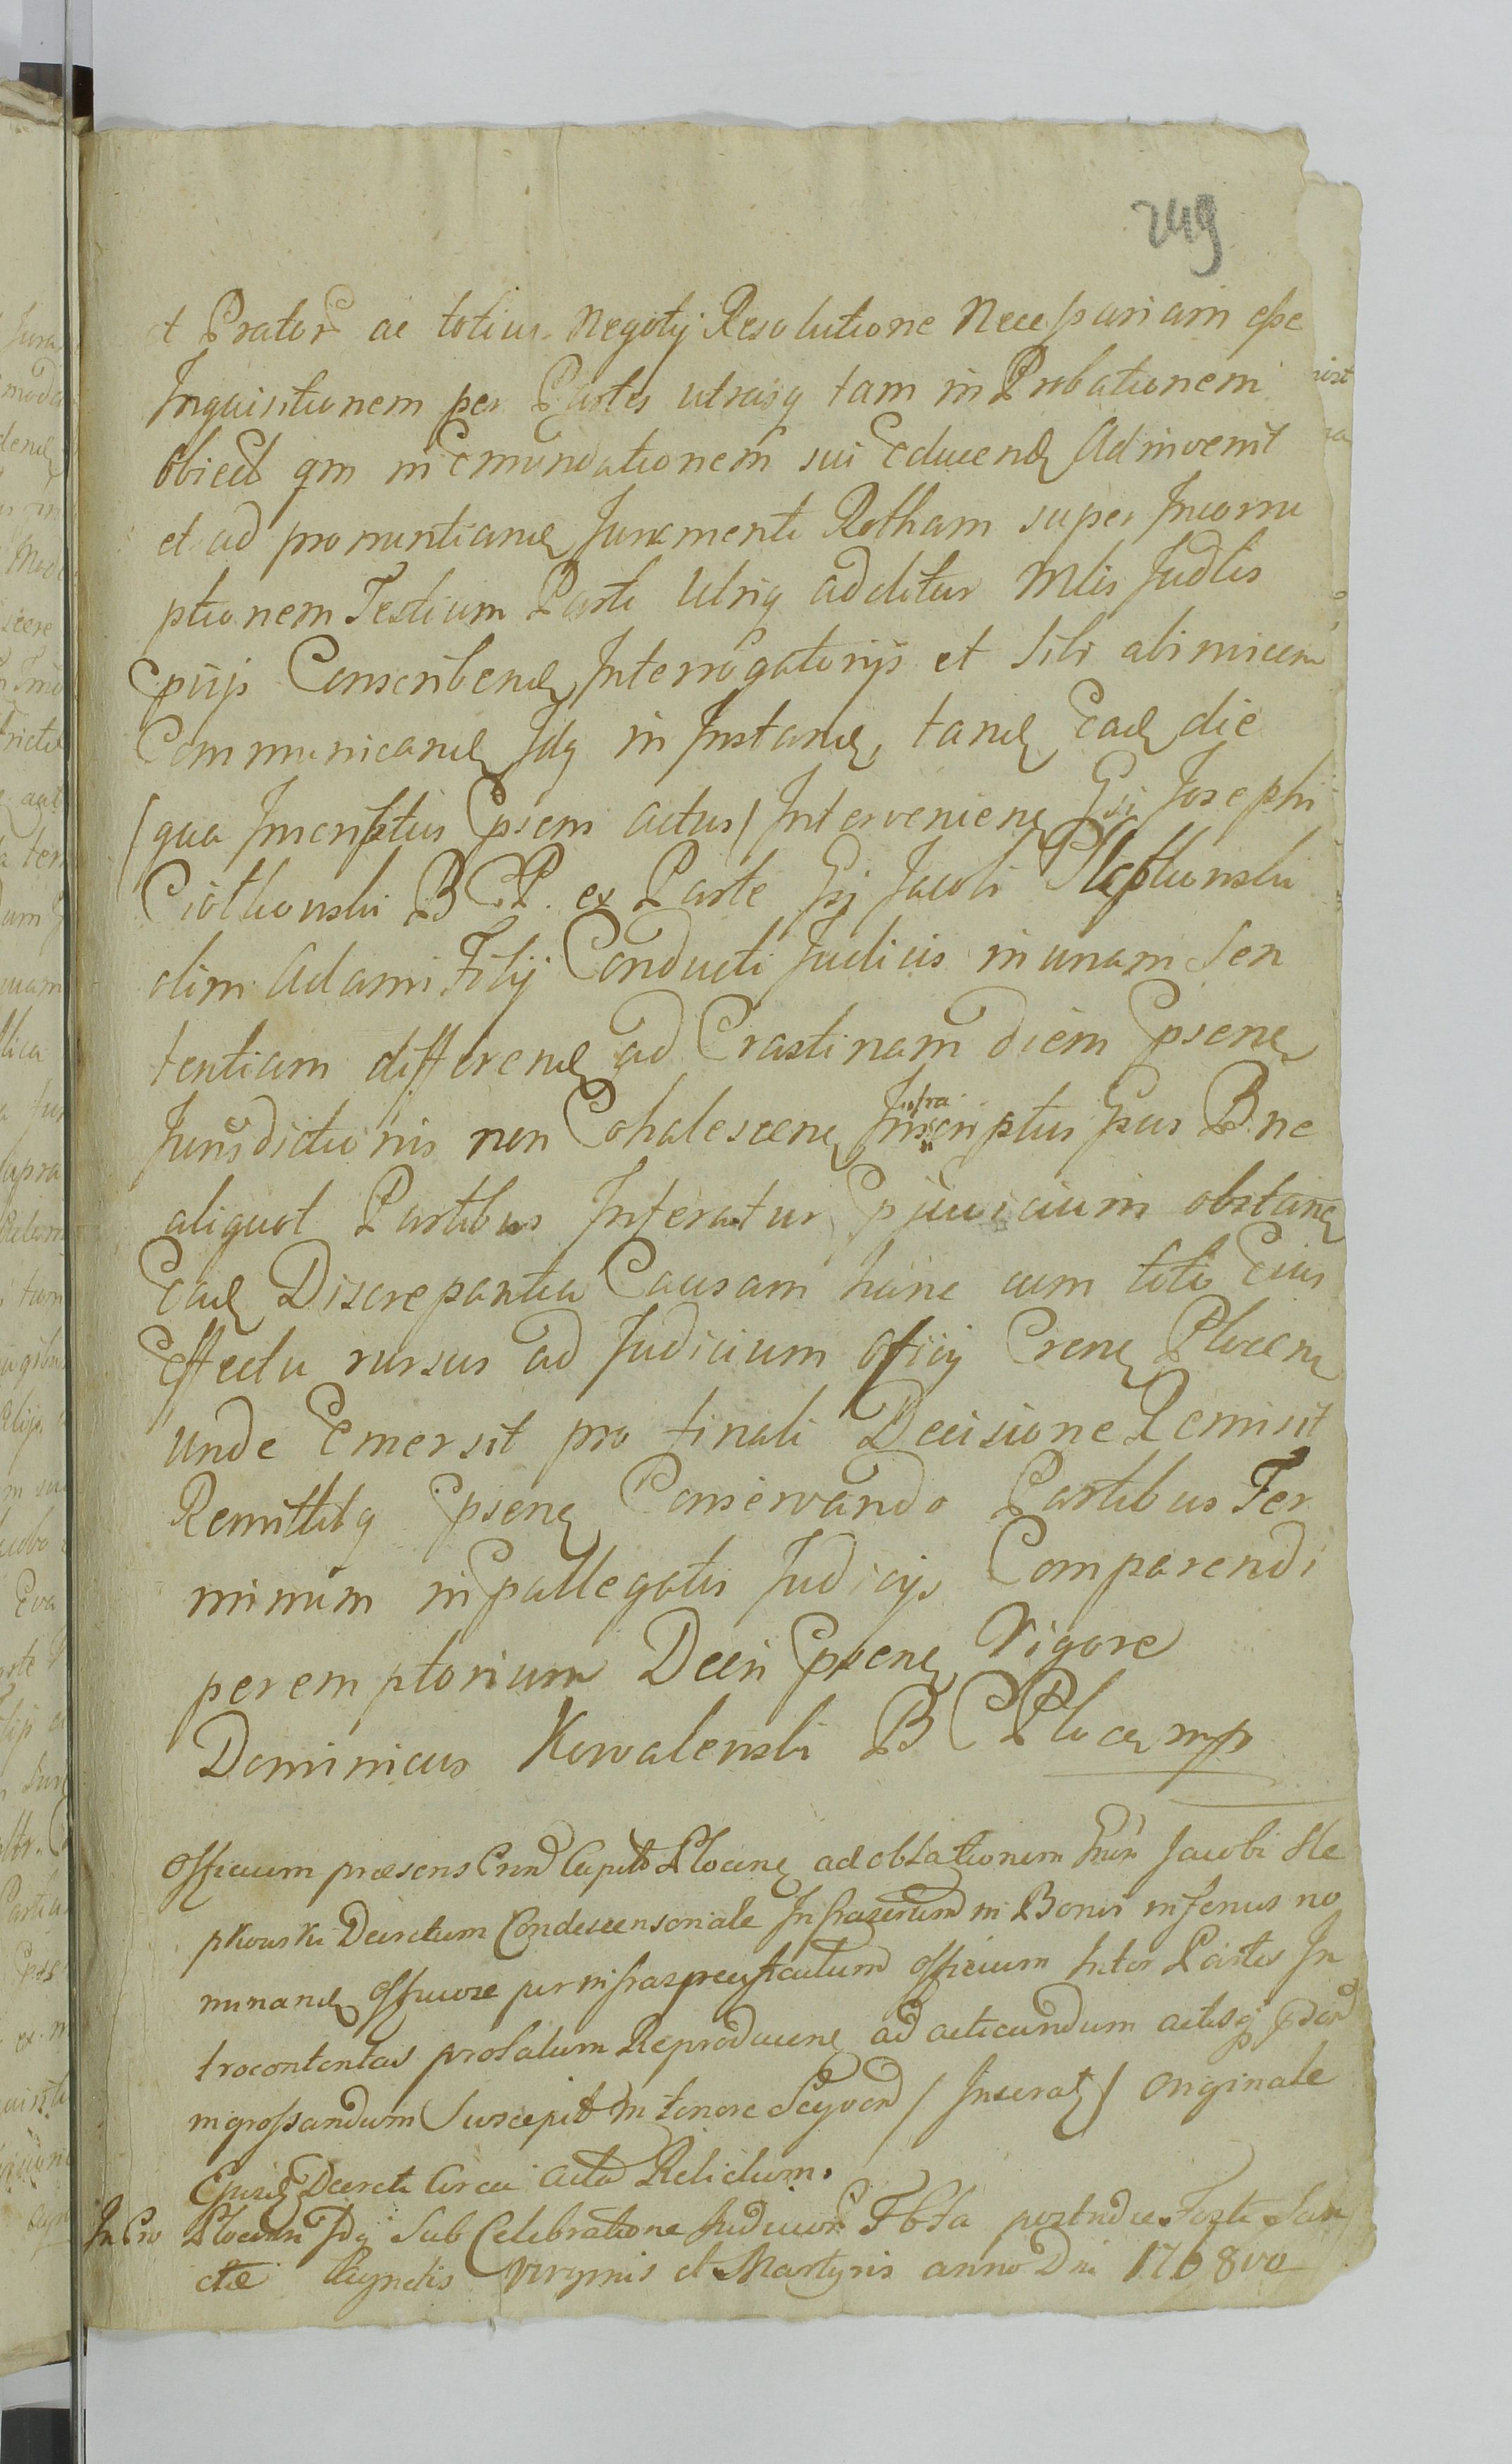 249
t Prator ac totius Negotij Resolutione Necessariam esse
Inquisitionem per Partes utrasq tam in Probationem
obiect qm in Emundationem sui Educend Adinvenit
et ad pronuntiand Juramenti Rotham super Incorru
ptionem Testium Parti Utriq additur Mlis Judlis
Epijs Conscribend Interrogatorijs et Sibi abinvicem
Communicand Idq in Instand, tand Ead die
(qua Inscriptus Epsens actus) Intervenien Gsi Josephi
Ciolkowski B C P. ex Parte Gsi Jacobi Slepkowski
olim Adami Filij Conducti Judicis in unam Sen
tentiam differend ad Crastinam diem Epsene
Jurisdictionis non Cohalescene Infra scriptus Gsus B ne
aliquot Partibus Inferatur Epjuvicium obstane
Ead Discrepantia Causam hanc cum toto Eius
Effectu rursus ad Judicium officij Crene Plocene
unde Emersit pro finali Decisione Remisit
Remittitq Epsene Conservando Partibus Ter
minum in Epallegatis Judicijs Comparendi
peremptorium Decri Epsene Vigore
Dominicus Kowalewski B C Ploce mp
Officium præsens Crnd Capitl Plocene ad oblationem Jacobi Sle
pkowski Decretum Condescensoriale Infrascriptum in Bonis inferius no
minand Officiose per infraspecificatum officium Inter Partes In
trocontentas prolatum Reproducene ad acticandum actisq
ingrossandum Suscepit in tenore Seqvend / Inserat / Originale
Ejusd Decreti Circa acta Relictum.
In Cro Plocenn Idq Sub Celebratione Judicior postridie Festi San
ctæ Agnetis Virginis et Martyris anno Dni 1768vo